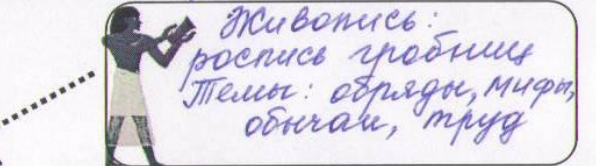 Живопись:
роспись гробниц
Темы: обряды, мифы,
обычаи, труд